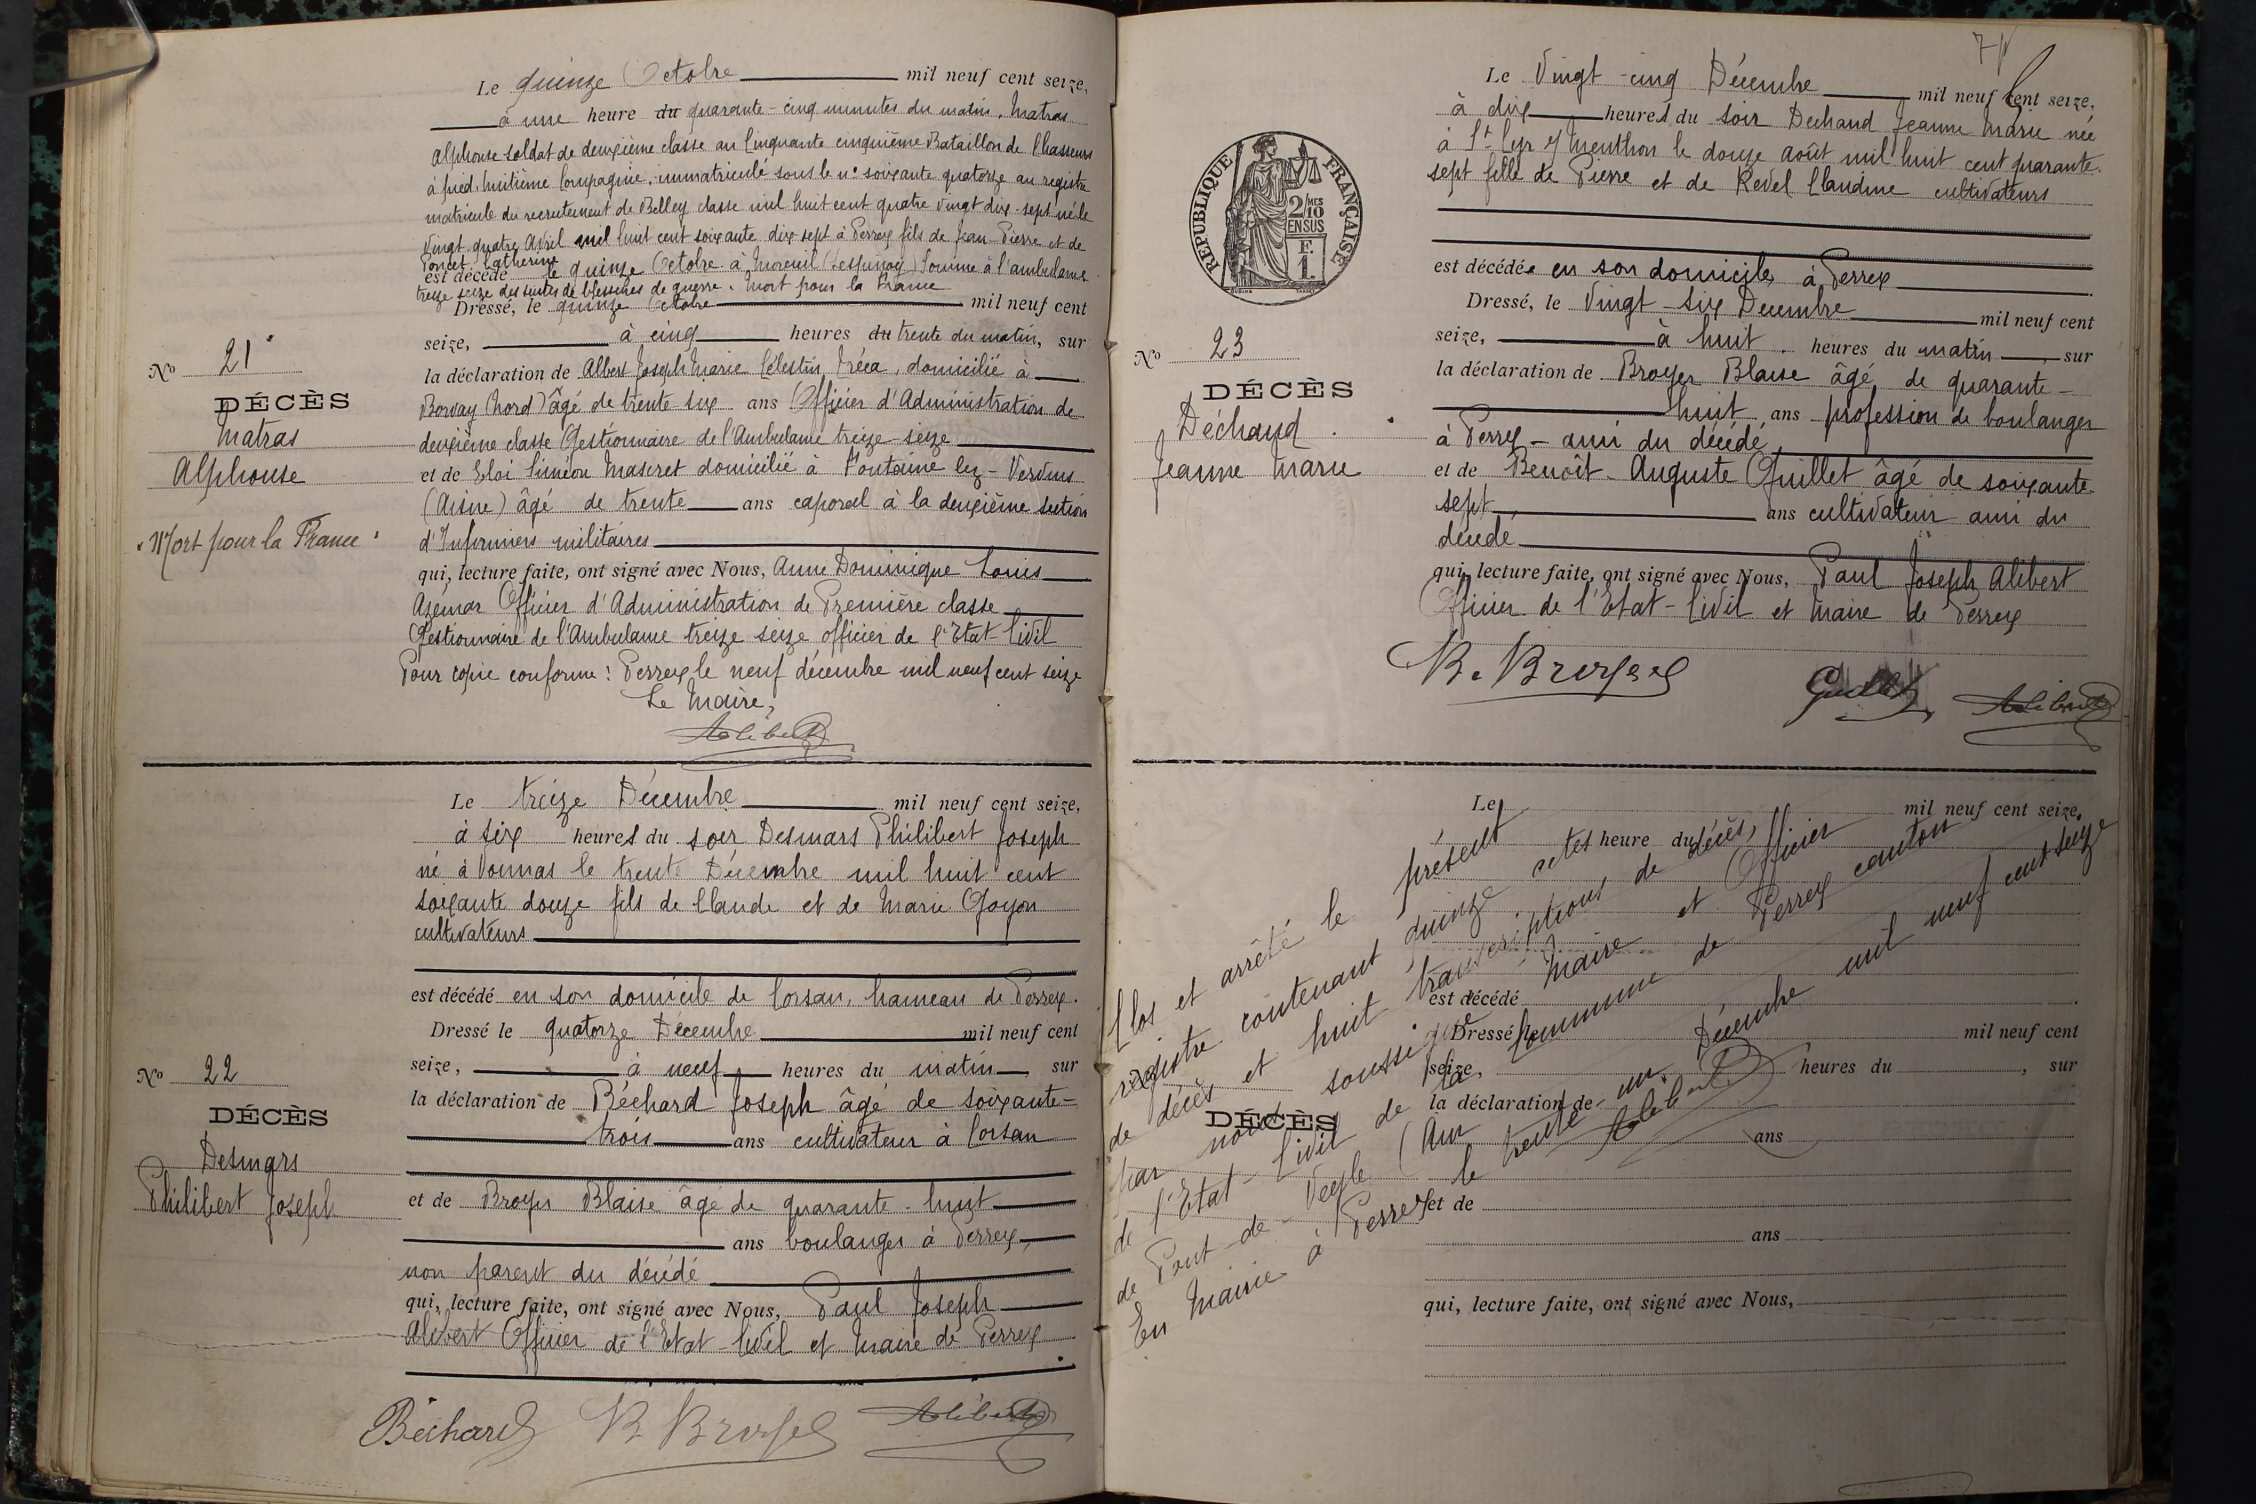 Le quinze Octobre mil neuf cent seize,
à une heure du quarante-cinq minutes du matin, Matras
Alphonse soldat de deuxième classe au Cinquante cinquième Bataillon de Chasseurs
à pied, huitième Compagnie, immatriculé sous le n° soixante quatorze au registre
matricule du recrutement de Belley classe mil huit cent quatre vingt dix-sept né le
Vingt quatre Avril mil huit cent soixante dix sept à Perrex fils de Jean-Pierre et de
Poncet Catherine
est décédé le quinze Octobre à Moreuil Somme à l'ambulance
treize seize des suites de blessures de guerre. Mort pour la France
Dressé, le quinze Octobre mil neuf cent
seize, à cinq heures du trente du matin, sur
la déclaration de Albert Joseph Marie Célestin Tréca, domicilié à
(Nord) âgé de trente six ans Officier d'Administration de
deuxième classe Gestionnaire de l'Ambulance treize-seize
et de Eloi Siméon Mascret domicilié à Fontaine lez-Vervins
(Aisne) âgé de trente ans caporal à la deuxième section
d'Infirmiers militaires
qui, lecture faite, ont signé avec Nous, Anne Dominique Louis
Azémar Officier d'Administration de Première classe
Gestionnaire de l'Ambulance treize seize officier de l'Etat-Civil
Pour copie conforme: Perrex le neuf décembre mil neuf cent seize
Le Maire,
Alibert
No 21
DÉCÈS
Matras
Alphonse
"Mort pour la France"
Le treize Décembre mil neuf cent seize,
à six heures du soir Desmars Philibert Joseph
né à Vonnas le trente Décembre mil huit cent
soixante douze fils de Claude et de Marie Goyon
cultivateurs
est décédé en son domicile de Corsan, hameau de Perrex.
Dressé le quatorze Décembre mil neuf cent
seize, à neuf heures du matin sur
la déclaration de Béchard Joseph âgé de soixante-
trois ans cultivateur à Corsan
et de Broyer Blaise âgé de quarante-huit
ans boulanger à Perrex,
non parent du décédé
qui, lecture faite, ont signé avec Nous, Paul Joseph
Alibert Officier de l'Etat-Civil et Maire de Perrex
Béchard B. Broyer Alibert
No 22
DÉCÈS
Desmars
Philibert Joseph
Le Vingt-cinq Décembre mil neuf cent seize,
à dix heures du soir Dechand Jeanne Marie née
à St Cyr s/ Menthon le douze août mil huit cent quarante-
sept fille de Pierre et de Revel Claudine cultivateurs
est décédée en son domicile, à Perrex
Dressé, le Vingt-six Décembre mil neuf cent
seize, à huit heures du matin sur
la déclaration de Broyer Blaise âgé de quarante-
huit ans profession de boulanger
à Perrex - ami du décédé
et de Benoît-Auguste Guillet âgé de soixante-
sept ans cultivateur ami du
décédé
qui, lecture faite, ont signé avec Nous, Paul Joseph Alibert
Officier de l'Etat-Civil et Maire de Perrex
B. Broyer Guillet Alibert
RÉPUBLIQUE FRANÇAISE
2/10 MES
EN SUS
F.
1.
No 23
DÉCÈS
Déchand
Jeanne Marie
Le mil neuf cent seize,
heure du
est décédé
Dressé, le mil neuf cent
seize, heures du , sur
la déclaration de
ans
et de
ans
qui, lecture faite, ont signé avec Nous,
DÉCÈS
Clos et arrêté le présent
registre contenant quinze actes
de décès et huit transcriptions de décès,
par nous soussigné Maire et Officier
de l'Etat-Civil de la Commune de Perrex canton
de Pont-de-Veyle (Ain
En Mairie à Perrex le trente-un Décembre mil neuf cent seize
Alibert